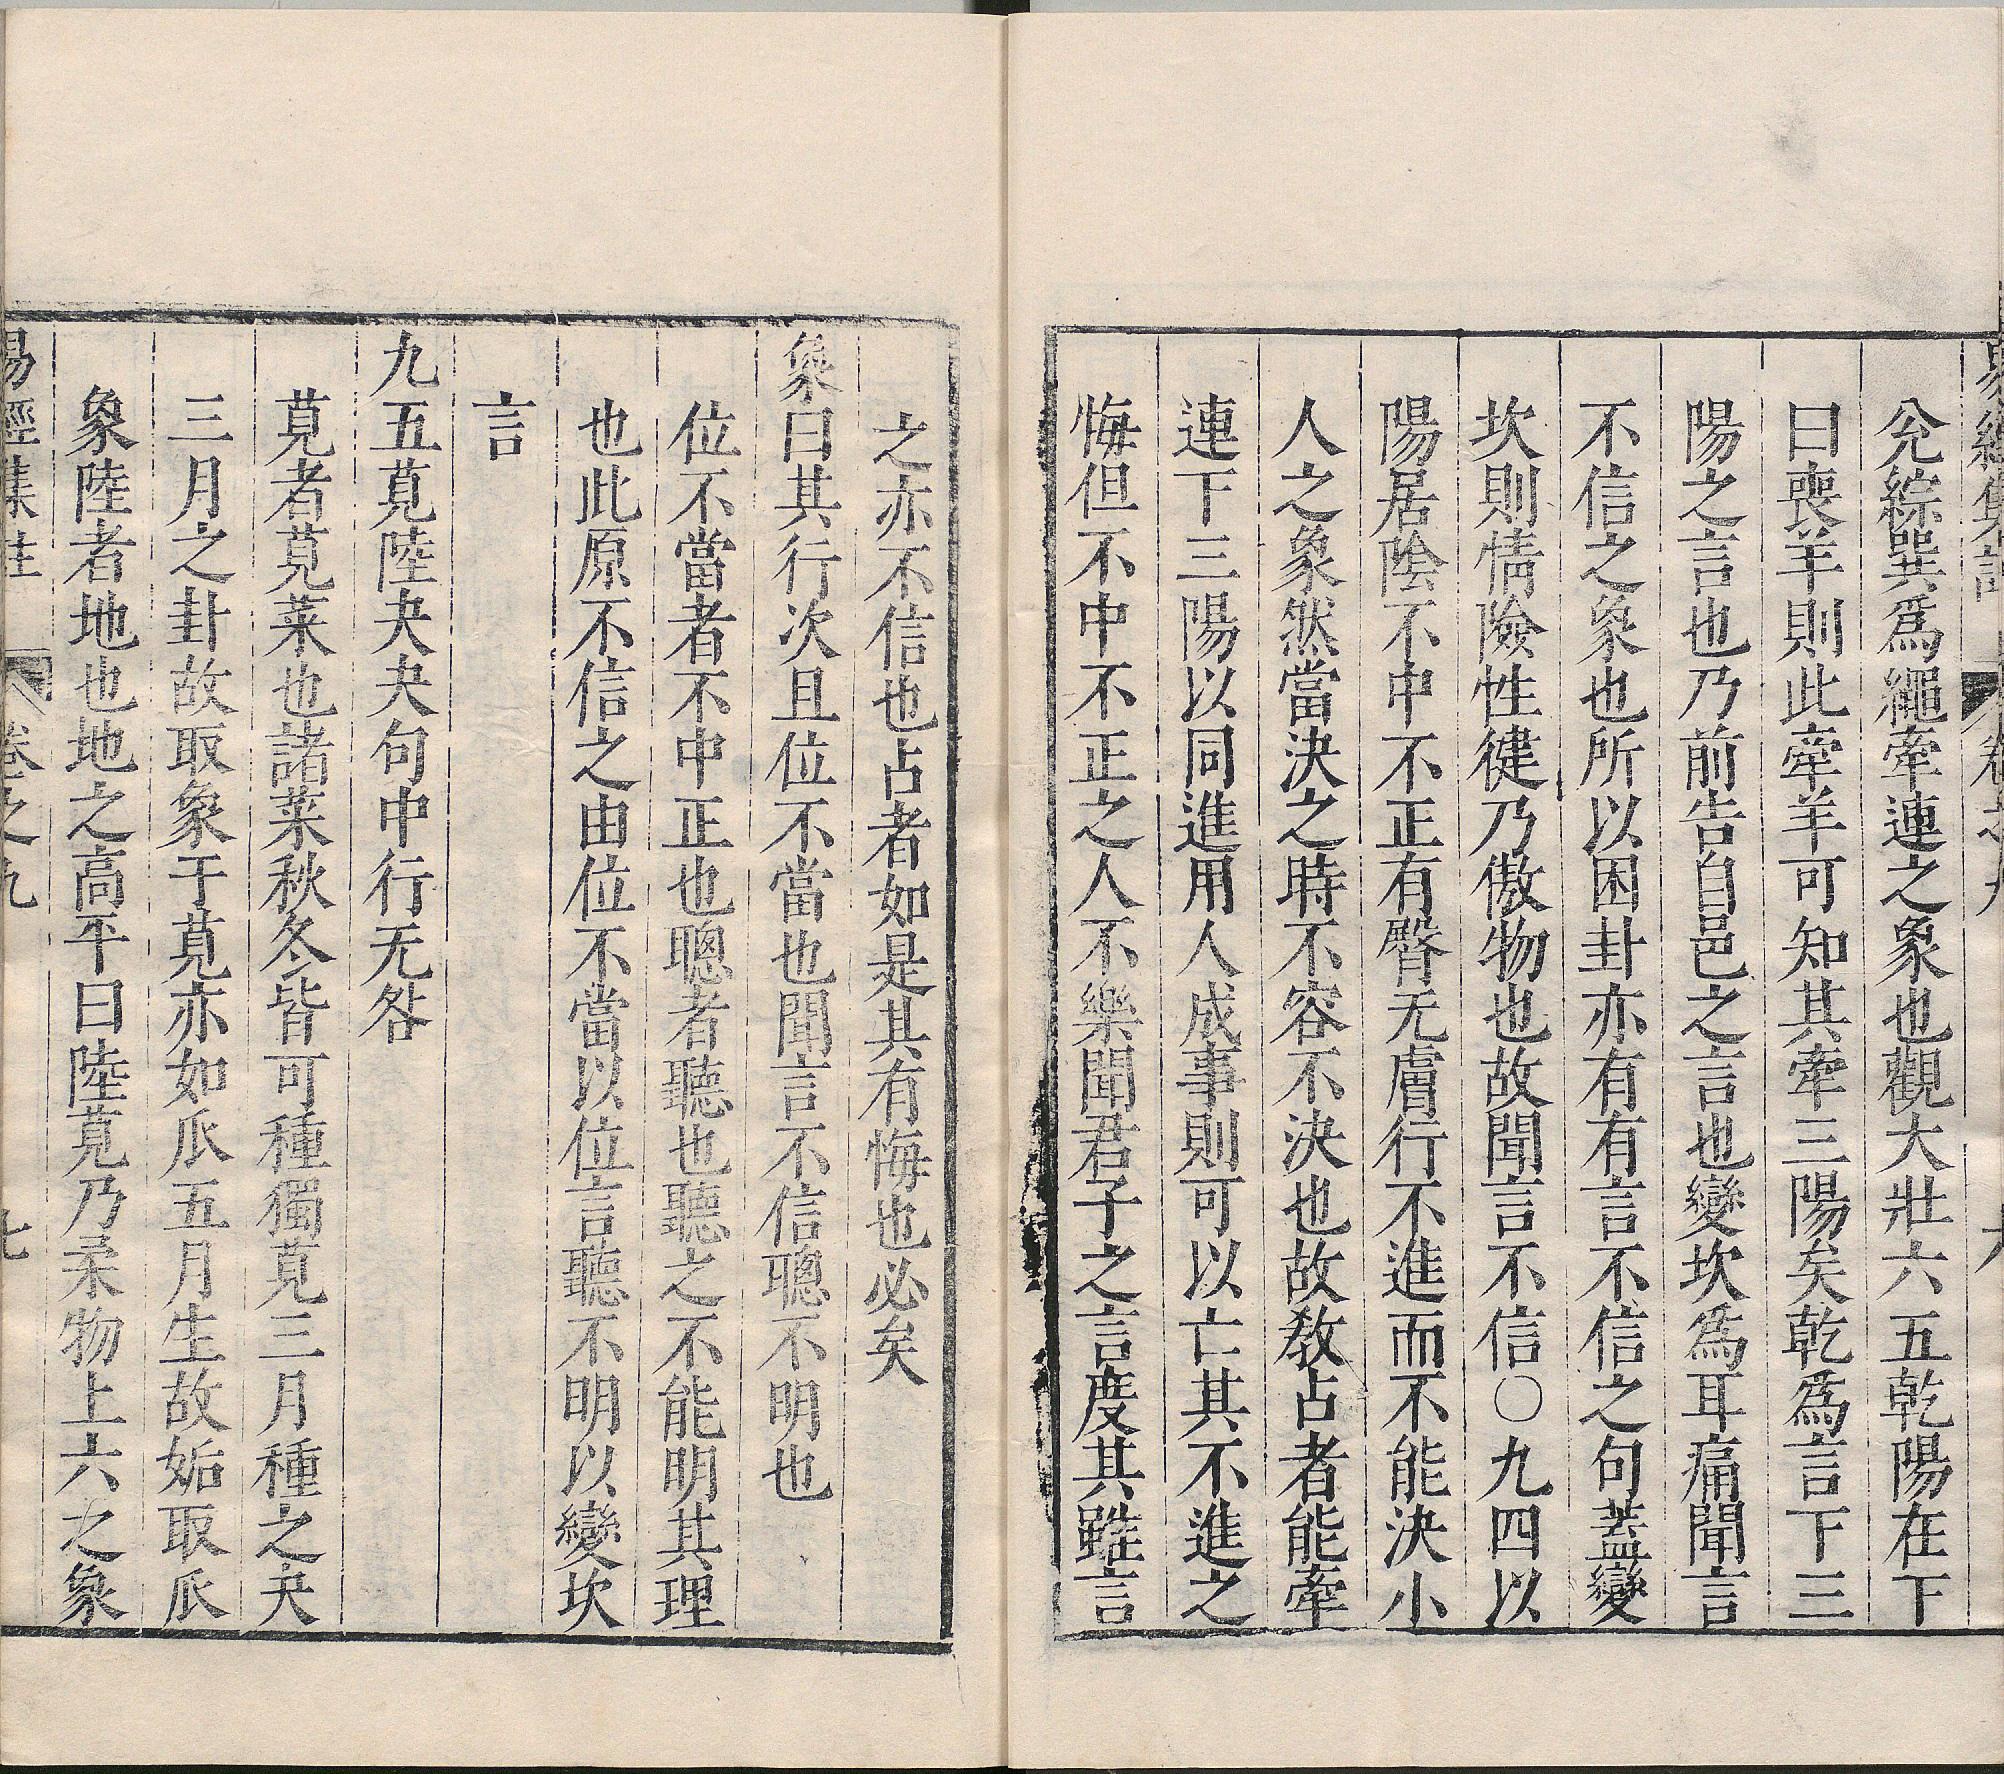 易經集註 卷之九 六
兊綜巽爲繩牽連之象也觀大壯六五乾陽在下
曰喪羊則此牽羊可知其牽三陽矣乾爲言下三
陽之言也乃前告自邑之言也變坎爲耳痛聞言
不信之象也所以困卦亦有有言不信之句蓋變
坎則情險性健乃傲物也故聞言不信○九四以
陽居陰不中不正有臀无膚行不進而不能決小
人之象然當決之時不容不決也故敎占者能牽
連下三陽以同進用人成事則可以亡其不進之
悔但不中不正之人不樂聞君子之言度其雖言
之亦不信也占者如是其有悔也必矣
象曰其行次且位不當也聞言不信聰不明也
位不當者不中正也聰者聽也聽之不能明其理
也此原不信之由位不當以位言聽不明以變坎
言
九五莧陸夬夬句中行无咎
莧者莧菜也諸菜秋冬皆可種獨莧三月種之夬
三月之卦故取象于莧亦如瓜五月生故姤取瓜
象陸者地也地之高平曰陸莧乃柔物上六之象
易經集註 卷之九 七